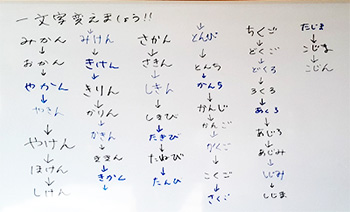 一文字変えましょう!!
みかん
おかん
やかん
やきん
やけん
ほけん
しけん
みけん
きけん
きりん
かりん
かきん
ききん
きかん
さかん
さきん
しきん
しきび
たきび
たねび
たんび
とんび
とんち
かんち
かんじ
かんご
かくご
こくご
さくご
ちくご
どくご
どくろ
ろくろ
あくろ
あじろ
あじみ
しじみ
しじま
たじま
こじま
こじん